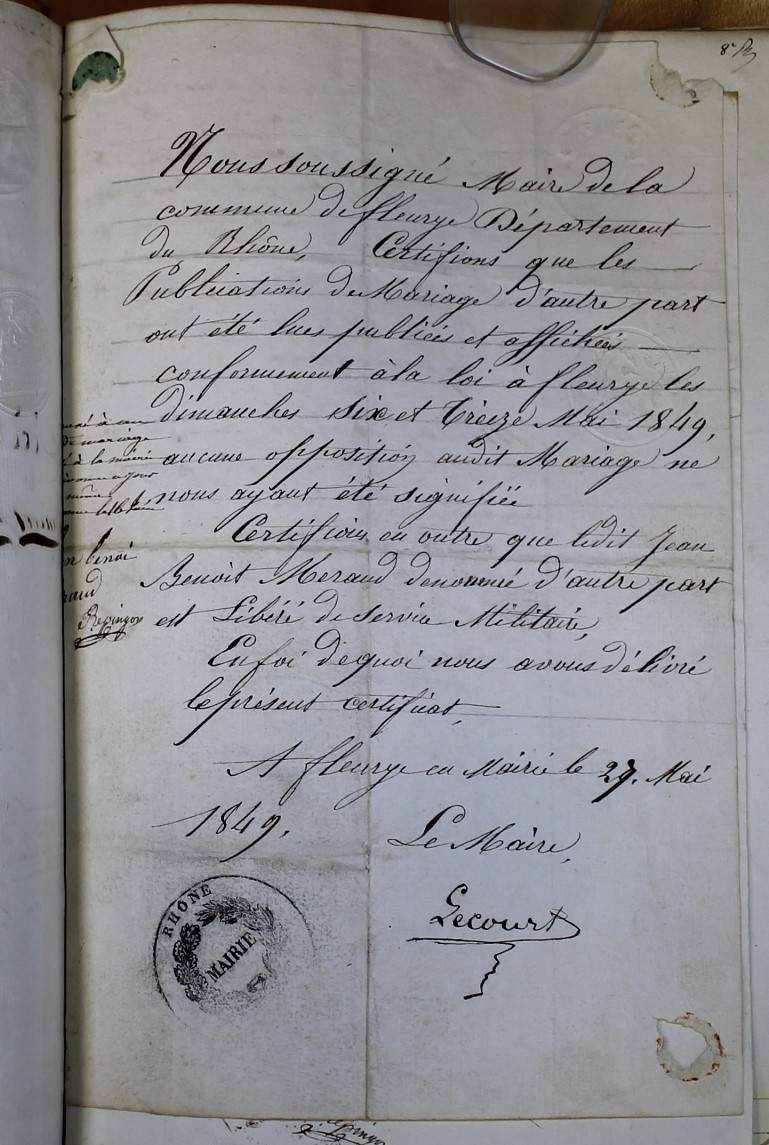 Nous soussigné Maire de la
commune de fleurye Département
du Rhône, Certifions que les
Publications de Mariage d'autre part
ont été lues publiées et affichées
conformement à la loi à fleurye les
dimanches six et treize Mai 1849,
aucune opposition audit Mariage ne
nous ayant été signifiée
Certifions en outre que ledit Jean
Benoit Meraud denommé d'autre part
est Libéré de service Militaire,
En foi de quoi nous avons délivré
le présent certificat,
A fleurye en Mairie le 27. Mai
1849.
Le Maire,
Lecourt
RHÔNE
MAIRIE
de mariage
à la mairie